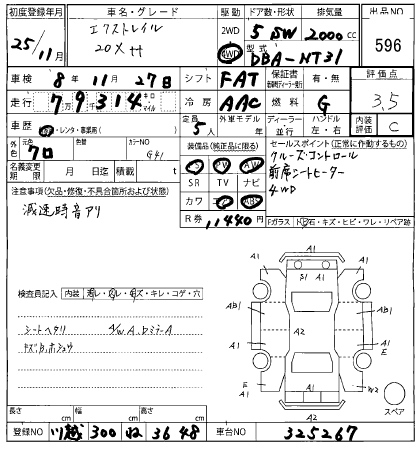 初度登録年月 車名・グレード 駆動 ドア数・形状 排気量 出品NO
25/11月 エクストレイル 20X tt 2WD 4WD 5 SW 2000cc 596
型式 DBA-NT31
車検 8年 11月 27日 シフト FAT 保証書 有・無 評価点
走行 79314 キロ マイル 冷房 AAC 燃料 G 3.5
車歴 自・レンタ・事業用( ) 定員 5人 外車モデル 年 ディーラー 並行 ハンドル 左・右 内装評価 C
外色 元色 クロ 色替 カラーNO G41
装備品(純正品に限る) セールスポイント(正常に作動するもの)
名義変更期限 月 日迄 積載 t
PS PW AW
SR TV ナビ
カワ エアB ABS
R券 11440円
クルーズコントロール
前席シートヒーター
4WD
注意事項(欠品・修復・不具合箇所および状態)
減速時音アリ
Fガラス トビ石・キズ・ヒビ・ワレ・リペア跡
検査員記入 内装 汚レ・スレ・キズ・キレ・コゲ・穴
シートヘタリ A/W A, DミラーA
A1
S1 A1
A1 AB1 AB1 A1
A1 A1 E
E A1 W2
A1
A2
A2
スペア
長さ cm 幅 cm 高さ cm
登録NO 川越 300 ね 3648 車台NO 325267